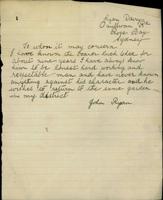 Rose Bay
Sydney
To whom it may concern
I have known the bearer
about nine years I have always know
him to be honest hard working and
respectable man and have never known
anything against his character and he
wishes to return to the same garden
in my district
John Ryan